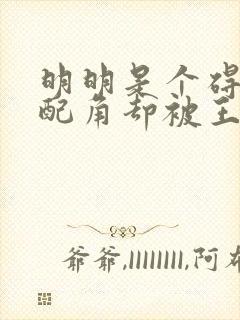 明明是个碍
配角却被王
爷爷,llllllll,阿布